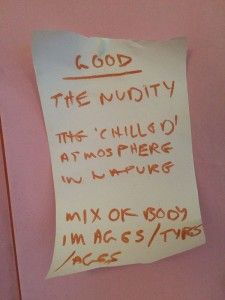 GOOD
THE NUDITY
THE 'CHILLED'
ATMOSPHERE
IN NATURE
MIX OF BODY
IMAGES/TYPES
/AGES